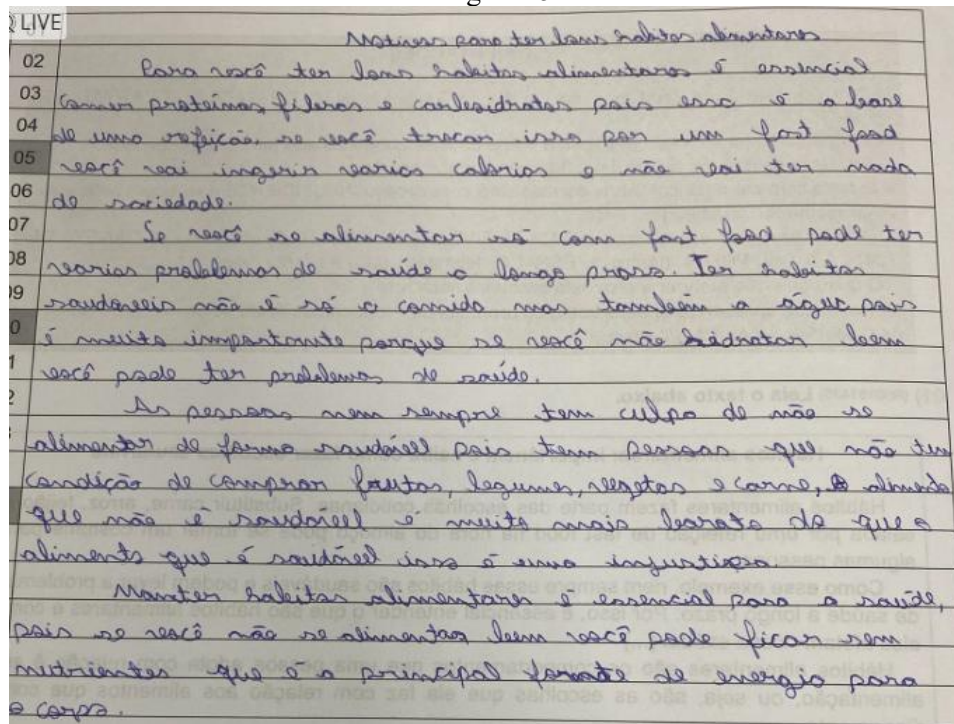 LIVE
Motivos para ter bons habitos alimentares
02 Para você ter bons habitos alimentares é essencial
03 comer proteínas, fibras e carboidratos pois essa é a base
04 de uma refeição, se você trocar isso por um fast food
05 você vai ingerir varias calorias e não vai ter nada
06 de saciedade.
07 Se você se alimentar só com fast food pode ter
08 varios problemas de saúde a longo prazo. Ter habitos
09 saudaveis não é só a comida mas também a água pois
0 é muito importante porque se você não hedratar bem
1 você pode ter problemas de saúde.
2 As pessoas nem sempre tem culpa de não se
alimentar de forma saudável pois tem pessoas que não tem
condição de comprar frutas, legumes, vegetas e carne, alimento
que não é saudavel é muito mais barato do que o
alimento que é saudável isso é uma injustiça.
Manter habitos alimentares é essencial para a saúde,
pois se você não se alimentar bem você pode ficar sem
nutrientes que é a principal fonte de energia para
o corpo.